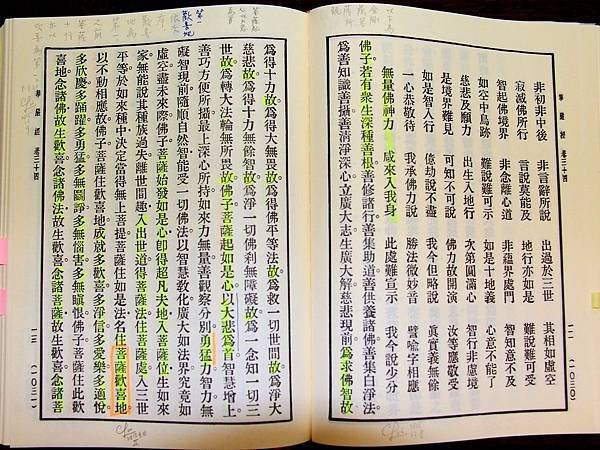 華嚴經 卷三十四
一二 (一〇三〇)
非初非中後 非言辭所說 出過於三世 其相如虛空
寂滅佛所行 言說莫能及 地行亦如是 難說難可受
智起佛境界 非念離心道 非蘊界處門 智知意不及
如空中鳥跡 難說難可示 如是十地義 心意不能了
慈悲及願力 出生入地行 次第圓滿心 智行非慮境
是境界難見 可知不可說 佛力故開演 汝等應敬受
如是智入行 億劫說不盡 我今但略說 真實義無餘
一心恭敬待 我承佛力說 勝法微妙音 譬喻字相應
無量佛神力 咸來入我身 此處難宣示 我今說少分
佛子若有眾生深種善根善修諸行善集助道善供養諸佛善集白淨法
為善知識善攝善清淨深心立廣大志生廣大解慈悲現前為求佛智故
為得十力故為得大無畏故為得佛平等法故為救一切世間故為淨大
慈悲故為得十力無餘智故為淨一切佛剎無障礙故為一念知一切三
世故為轉大法輪無所畏故佛子菩薩起如是心以大悲為首智慧增上
善巧方便所攝最上深心所持如來力無量善觀察分別勇猛力智力無
礙智現前隨順自然智能受一切佛法以智慧教化廣大如法界究竟如
虛空盡未來際佛子菩薩始發如是心即得超凡夫地入菩薩位生如來
家無能說其種族過失離世間趣入出世道得菩薩法住菩薩處入三世
平等於如來種中決定當得無上菩提菩薩住如是法名住菩薩歡喜地
以不動相應故佛子菩薩住歡喜地成就多歡喜多淨信多愛樂多適悅
多欣慶多踊躍多勇猛多無鬪諍多無惱害多無瞋恨佛子菩薩住此歡
喜地念諸佛故生歡喜念諸佛法故生歡喜念諸菩薩故生歡喜念諸菩
華嚴經 卷三十四
一三 (一〇三一)
第一
歡喜地